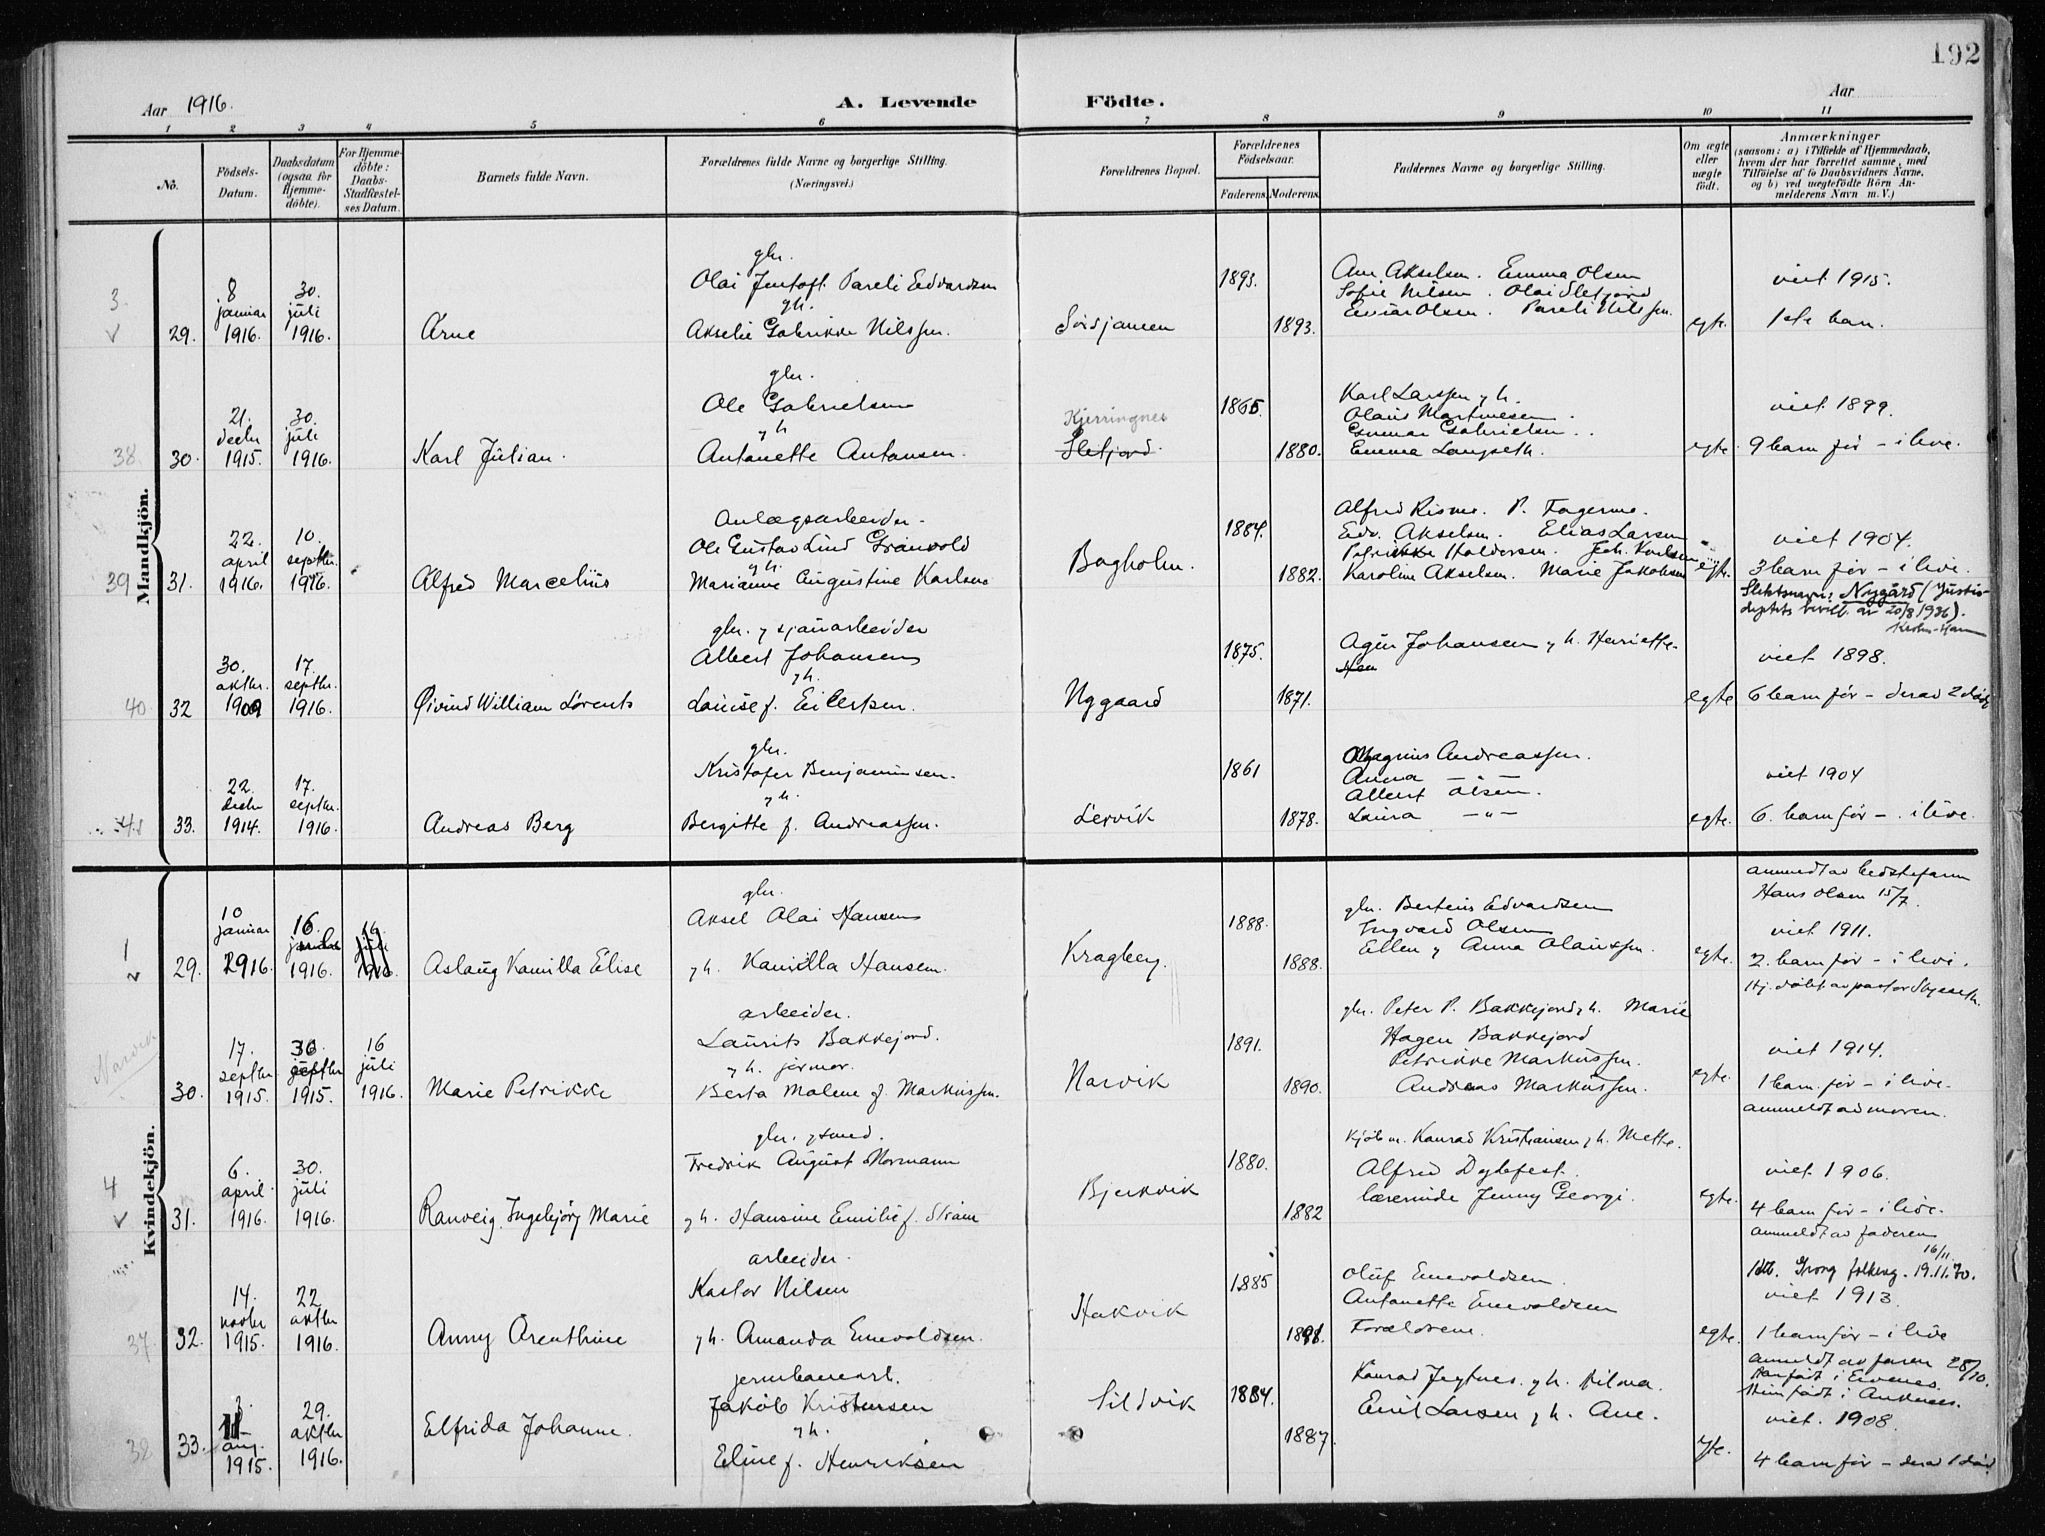 192
Aar 1916. A. Levende Födte. Aar
1 2 3 4 5 6 7 8 9 10 11
No.
Födsels-Datum.
Daabsdatum (ogsaa for Hjemme-döbte).
For Hjemme-döbte: Daabs-Stadfæstel-ses Datum.
Barnets fulde Navn.
Forældrenes fulde Navne og borgerlige Stilling.
(Næringsvei.)
Forældrenes Bopæl.
Forældrenes Födselsaar.
Faderens. Moderens.
Faddernes Navne og borgerlige Stilling.
Om ægte eller uægte födt.
Anmærkninger
(saasom: a) i Tilfælde af Hjemmedaab,
hvem der har forrettet samme, med
Tilföielse af to Daabsvidners Navne,
og b) ved uægtefödte Börn An-
melderens Navn m. V.)
Mandkjön.
3.
29.
8 januar 1916.
30. juli 1916.
Arne
gbr.
Olai Justoft Pareli Edvardsen
y h.
Akselie Gabrikke Nilssen.
1893.
1893.
Ane Akselsen. Emma Olsen
Sofie Nilsen. Olai Sletjord
Einar Olsen. Pareli Nilssen.
egte.
viet 1915.
1ste barn.
38.
30.
21. decbr 1915.
30. juli 1916.
Karl Julian.
gbr.
Ole Gabrielsen
y h
Antonette Antonsen.
Kjerringnes
Sletjord.
1865.
1880.
Karl Larssen y h.
Olaus Martinesen.
Gunnar Gabrielsen.
Emma Langseth.
egte
viet 1899.
9 barn før - i live.
39
31.
22. april 1916.
10. septbr. 1916.
Alfred Marcelius
Anlægsarbeider.
Ole Gustav Lind Grønvold
y h.
Marianne Augustine Karlsen
Bogholm.
1884.
1882.
Alfred Risnes. P. Fagernes.
Edv. Akselsen. Elias Larsen
Petrikke Haldorsen. Joh. Karlsen
Karoline Akselsen. Marie Jakobsen
egte.
viet 1904.
3 barn før - i live.
Slektsnavn: Nygård (Justis-
deptets bevill. av 20/8 1936).
40
32
30. oktbr. 1909
17. septbr. 1916.
Øivind William Lorents
gbr. y sjauarbeider
Albert Johansen
y h.
Louise f. Eilertsen.
Nygaard
1875.
1871.
Agur Johansen y h. Henriette.
egte
viet 1898.
6 barn før - derav 2 døde
33.
22. decbr 1914.
17. septbr. 1916.
Andreas Berg
gbr.
Kristofer Benjaminsen.
y h.
Bergitte f. Andreassen.
Lervik
1861
1878.
Magnus Andreassen.
Anna — " —
Albert Olsen.
Laura — " —
egte.
viet 1904
6. barn før - i live.
Kvindekjön.
1
29.
10 januar 1916.
16. 1916.
16. juli 1916.
Aslaug Kamilla Elise
gbr.
Aksel Olai Hansen
y h. Kamilla Hansen.
Kragberg.
1888.
1888.
gbr. Berteus Edvardsen
Ingvard Olsen
Ellen y Anna Olaussen.
egte.
anmeldt av bedstefaren
Hans Olsen 15/7.
viet 1911.
2. barn før - i live.
Hj. døbt av pastor Skjeseth.
Narvik
30.
17. septbr 1915.
30 septbr 1915.
16 juli 1916.
Marie Petrikke
arbeider.
Laurits Bakkejord.
y h. jermor.
Berta Malene f. Markussen.
Narvik
1891.
1890.
gbr. Peter P. Bakkejord y h. Marie
Hagen Bakkejord
Petrikke Markussen.
Andreas Markussen.
egte.
viet 1914.
1 barn før - i live.
anmeldt av moren.
4
31.
6. april 1916.
30. juli 1916.
Ranveig Ingebjørg Marie
gbr. y smed.
Fredrik August Normann
y h. Hansine Emilie f. Strøm
Bjerkvik
1880.
1882
kjøbm. Konrad Kristiansen y h. Mette.
Alfred Dybfest.
lærerinde Jenny Georgi.
egte.
viet 1906.
4 barn før - i live.
anmeldt av faderen
37.
32.
14. novbr 1915.
22 oktbr 1916.
Anny Arenthine
arbeider.
Kastor Nilsen
y h. Amanda Enevoldsen.
Hakvik
1885
1891.
Oluf Enevoldsen.
Antonette Enevoldsen
Forældrene.
egte.
16/11
Idtt. Grong folkereg. 19.11.70.
viet 1913.
1 barn før - i live
38
33.
aug. 1915.
29. oktbr 1916.
Elfrida Johanne.
jernbanearb.
Jakob Kristensen
y h.
Eline f. Henriksen
Sildvik
1884.
1887.
Konrad Jegtnes. y h. Hilma.
Emil Larsen y h. Ane.
egte.
anmeldt av faren 28/10.
Han født i Evenes.
Hun født i Ankenes.
viet. 1908.
4 barn før - derav 1 død